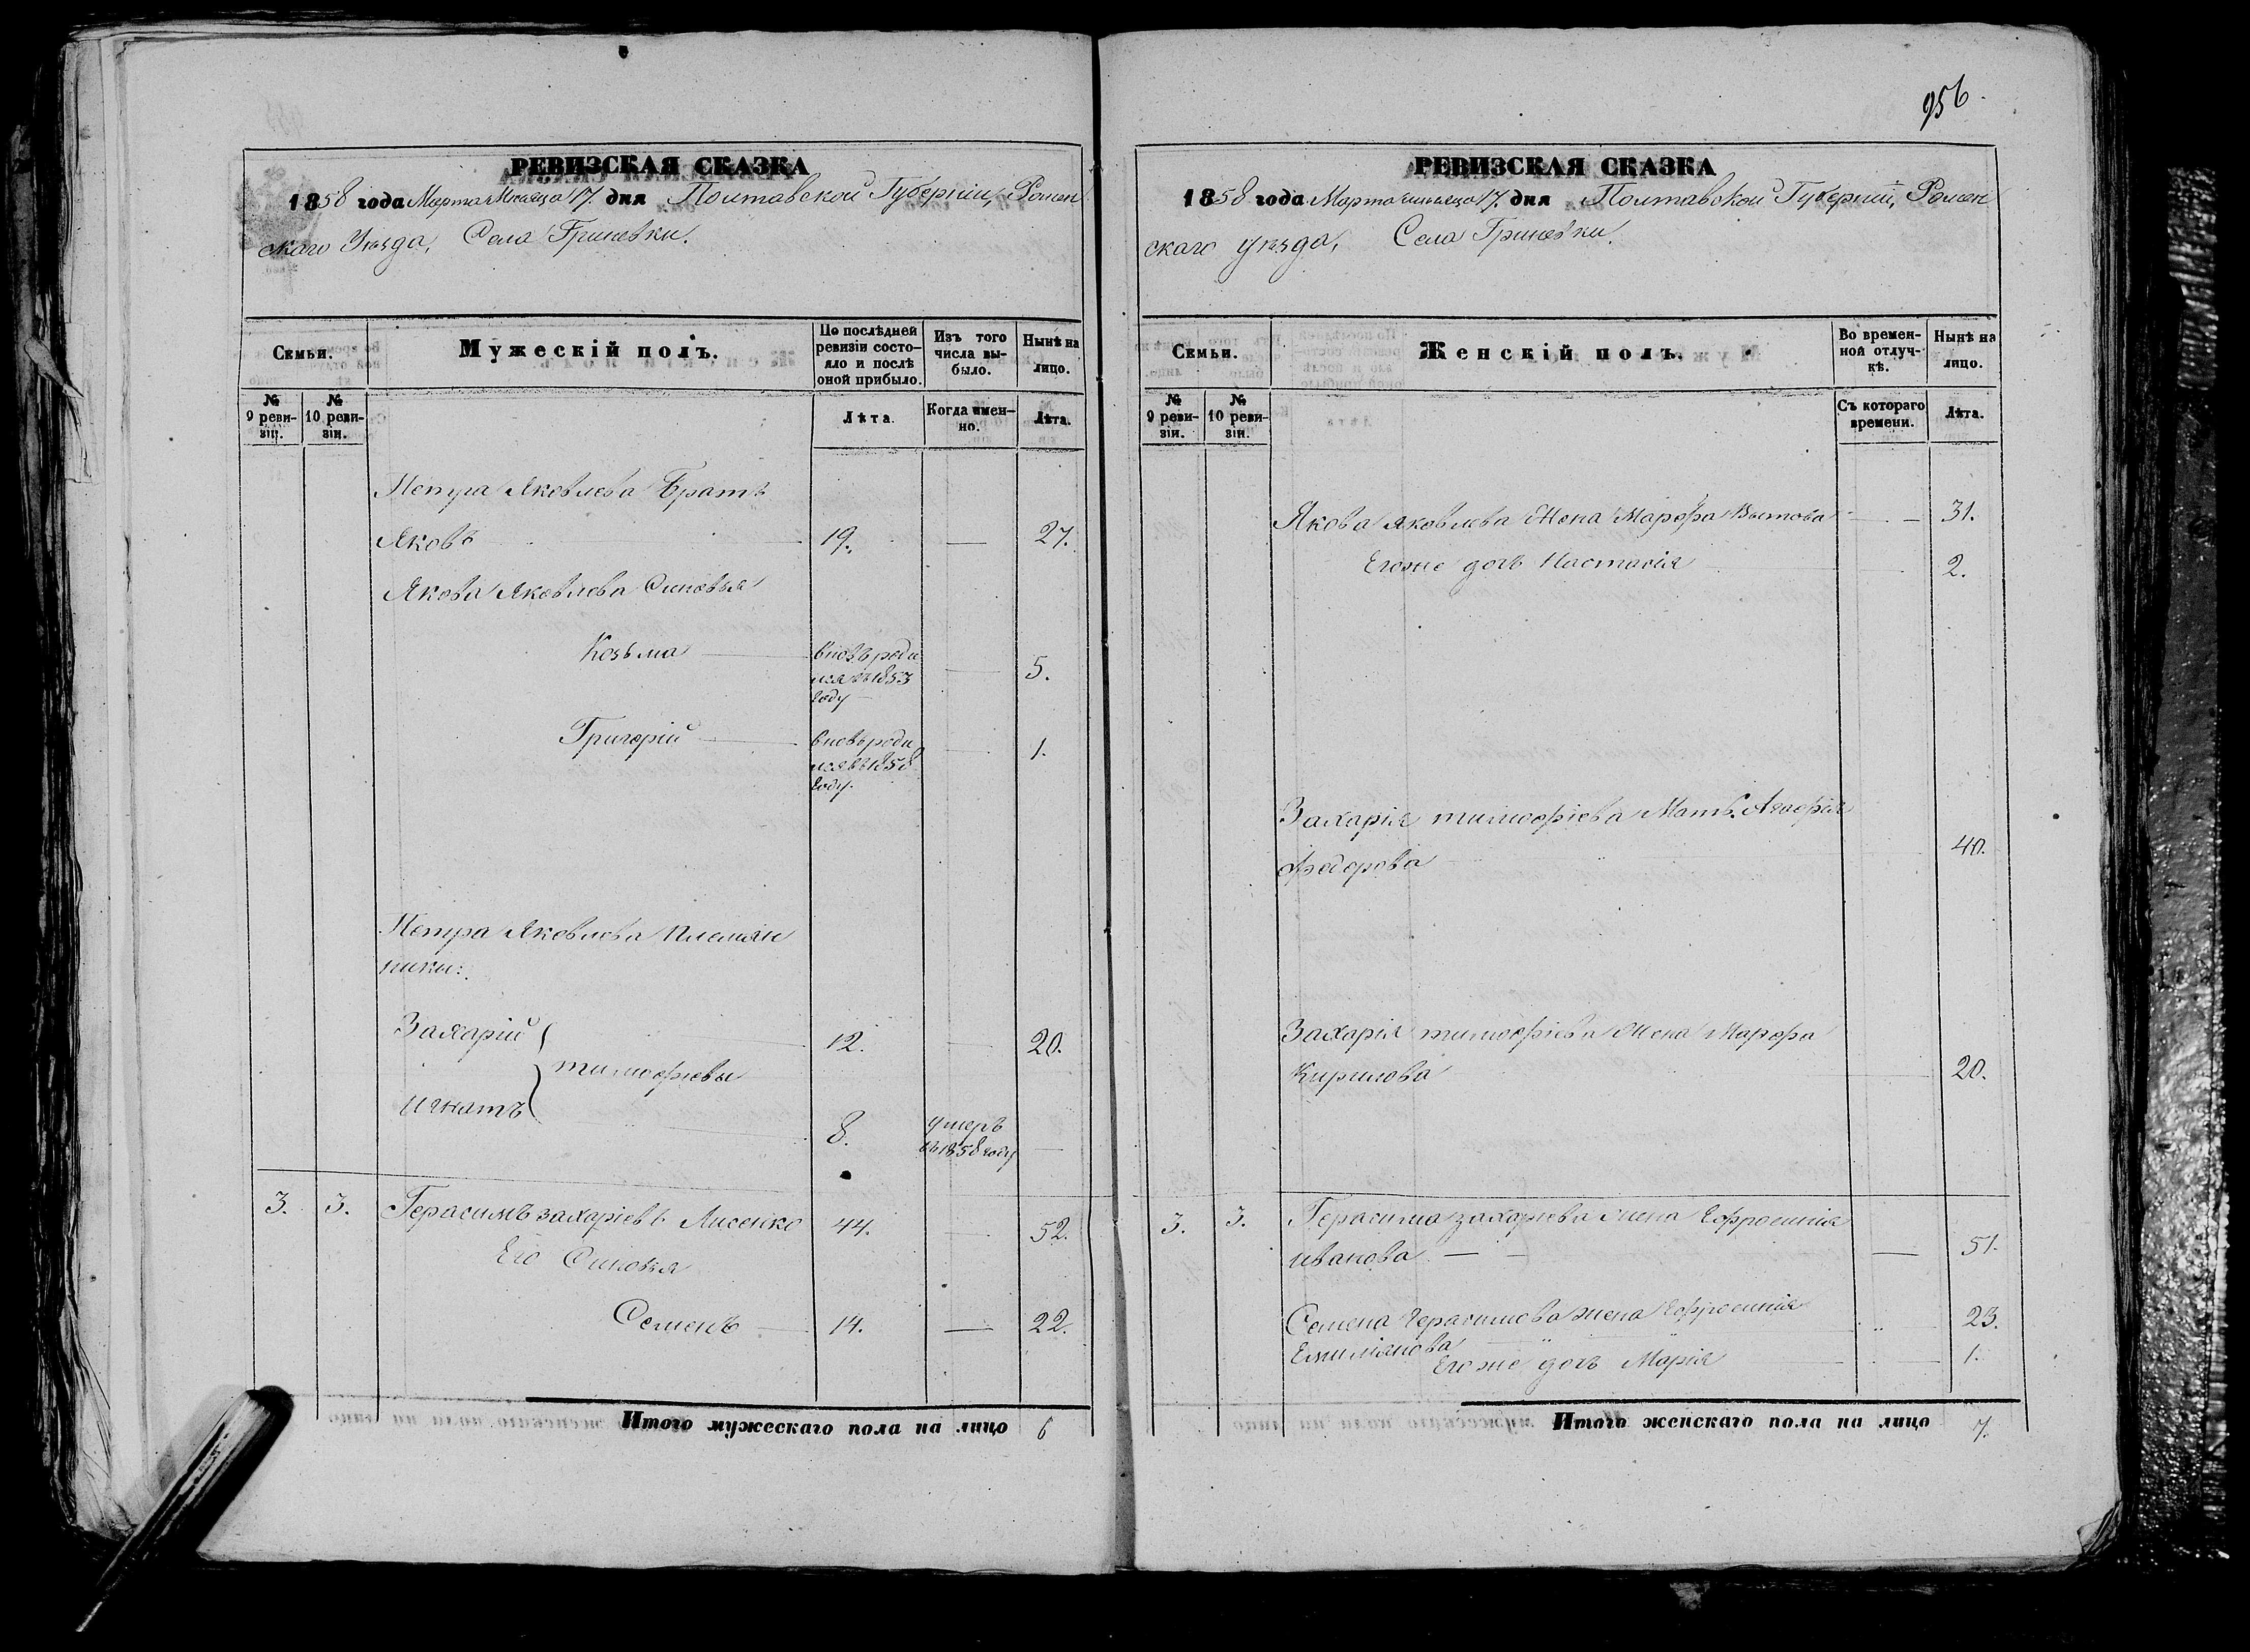 956.
РЕВИЗСКАЯ СКАЗКА
1858 года Марта Месяца 17. дня Полтавской Губерніи, Ромен
скаго Уѣзда, Села Гриневки.
Семьи.
Мужескій полъ.
По послѣдней ревизіи состояло и послѣ оной прибыло.
Изъ того числа выбыло.
Нынѣ на лицо.
№ 9 ревизіи.
№ 10 ревизіи.
Лѣта.
Когда именно.
Лѣта.
Петра Яковлева Братъ
Яковъ 19. — 27.
Якова Яковлева Синовья
Козьма вновь роди — 5.
лся въ 1853
году
Григорій вновь роди — 1.
лся въ 1858
году.
Петра Яковлева Племян
ники:
Захарій 12. — 20.
тимофіевы
Игнатъ 8. умеръ —
въ 1858 году
3. 3. Герасимъ захаріевъ Лисенко 44. — 52.
Его Синовья
Семенъ 14. — 22.
Итого мужескаго пола на лицо 6
РЕВИЗСКАЯ СКАЗКА
1858 года Марта месяца 17. дня Полтавской Губерніи, Ромен
скаго уѣзда, Села Гриневки.
Семьи.
Женскій полъ.
Во временной отлучкѣ.
Нынѣ на лицо.
№ 9 ревизіи.
№ 10 ревизіи.
Съ котораго времени.
Лѣта.
Якова яковлева Жена Марфа — 31.
Егоже дочь Настасія 2.
Захарія тимофіева Мать Агафія
федорова 40.
Захарія тимофіева Жена Марфа
Кирилова 20.
3. 3. Герасима захаріева жена Ефросинія
иванова — 51.
Семена Герасимова жена Ефросинія 23.
Емиліянова
Егоже дочь Марія 1.
Итого женскаго пола на лицо 7.